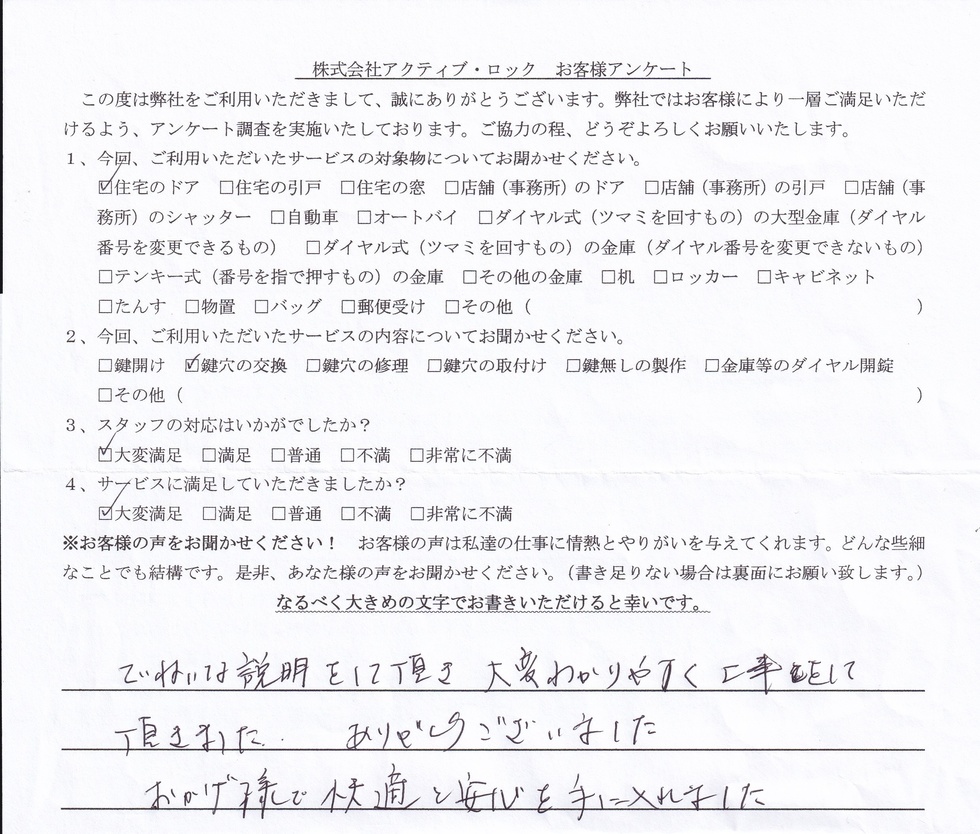 株式会社アクティブ・ロック　お客様アンケート
この度は弊社をご利用いただきまして、誠にありがとうございます。弊社ではお客様により一層ご満足いただ
けるよう、アンケート調査を実施いたしております。ご協力の程、どうぞよろしくお願いいたします。
１、今回、ご利用いただいたサービスの対象物についてお聞かせください。
☑住宅のドア　□住宅の引戸　□住宅の窓　□店舗（事務所）のドア　□店舗（事務所）の引戸　□店舗（事
務所）のシャッター　□自動車　□オートバイ　□ダイヤル式（ツマミを回すもの）の大型金庫（ダイヤル
番号を変更できるもの）　□ダイヤル式（ツマミを回すもの）の金庫（ダイヤル番号を変更できないもの）
□テンキー式（番号を指で押すもの）の金庫　□その他の金庫　□机　□ロッカー　□キャビネット
□たんす　□物置　□バッグ　□郵便受け　□その他（　　　）
２、今回、ご利用いただいたサービスの内容についてお聞かせください。
□鍵開け　☑鍵穴の交換　□鍵穴の修理　□鍵穴の取付け　□鍵無しの製作　□金庫等のダイヤル開錠
□その他（　　　）
３、スタッフの対応はいかがでしたか？
☑大変満足　□満足　□普通　□不満　□非常に不満
４、サービスに満足していただきましたか？
☑大変満足　□満足　□普通　□不満　□非常に不満
※お客様の声をお聞かせください！　お客様の声は私達の仕事に情熱とやりがいを与えてくれます。どんな些細
なことでも結構です。是非、あなた様の声をお聞かせください。（書き足りない場合は裏面にお願い致します。）
なるべく大きめの文字でお書きいただけると幸いです。
ていねいな説明をして頂き 大変わかりやすく工事をして
頂きました. ありがとうございました
おかげ様で快適と安心を手に入れました